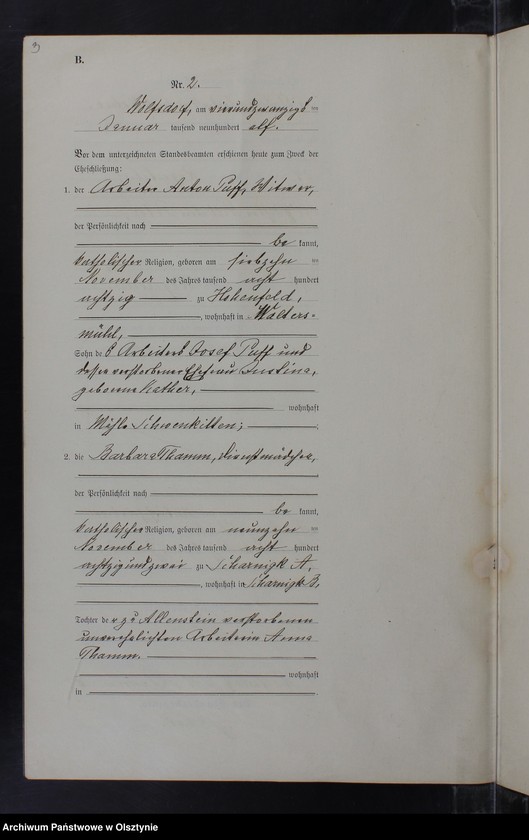 3
B.
Nr. 2.
Wolfsdorf, am vierundzwanzigs =
Januar tausend neunhundert elf.
Vor dem unterzeichneten Standesbeamten erschienen heute zum Zweck der
Eheschließung:
1. der Arbeiter Anton Puff, Witwer,
der Persönlichkeit nach
be kannt,
katholischer Religion, geboren am siebzehn =
November des Jahres tausend acht hundert
achtzig zu Hohenfeld,
, wohnhaft in Walters=
mühl,
Sohn des Arbeiters Josef Puff und
dessen verstorbener Ehefrau Justina,
geborene Kather,
wohnhaft
in Mühle Schwenkitten;
2. die Barbara Thamm, Dienstmädchen,
der Persönlichkeit nach
be kannt,
katholischer Religion, geboren am neunzehn =
November des Jahres tausend acht hundert
achtzigundzwei zu Scharnigk A,
, wohnhaft in Scharnigk B,
Tochter der zu Allenstein verstorbenen
unverehelichten Arbeiterin Anna
Thamm.
wohnhaft
in
Archiwum Państwowe w Olsztynie